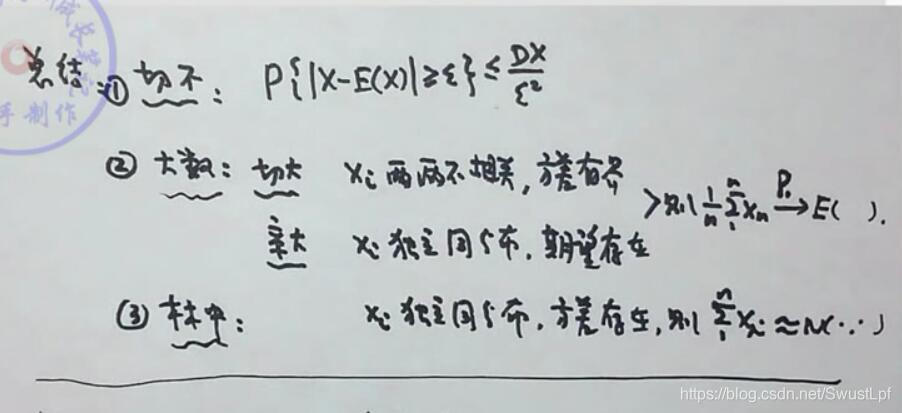 总结：① 切不： P{|X-E(X)|≥ε}≤DX/ε²
② 大数： 切大 Xi 两两不相关，方差有界
>则 1/n ∑₁ⁿ Xn →ᴾ E( ).
辛大 Xi 独立同分布，期望存在
③ 林中： Xi 独立同分布，方差存在，则 ∑₁ⁿ Xi ≈ N(∙,∙)
手制作
https://blog.csdn.net/SwustLpf